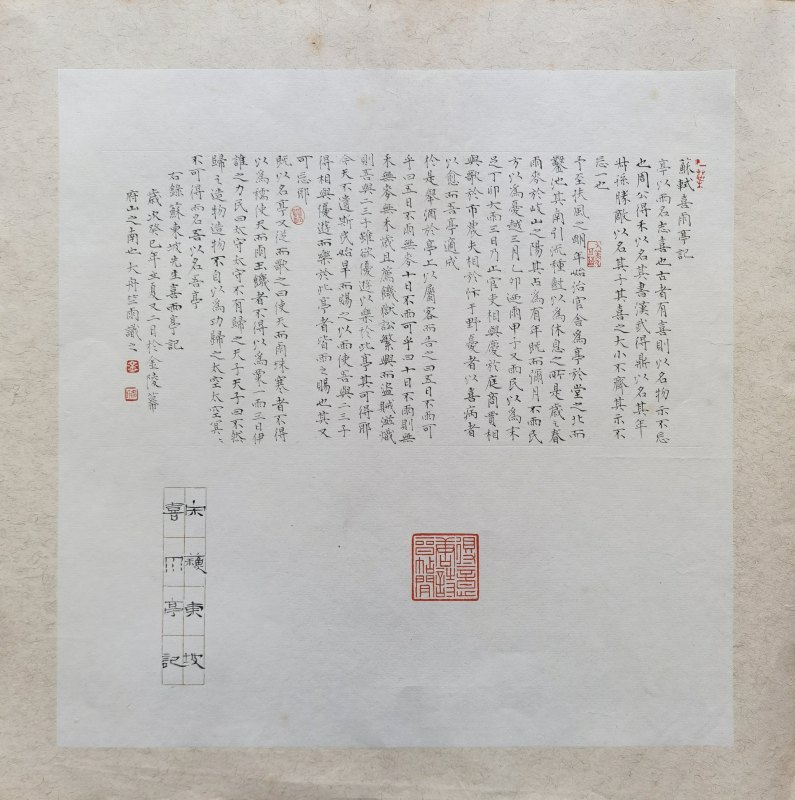 蘇軾喜雨亭記
亭以雨名志喜也古者有喜則以名物示不忘
也周公得禾以名其書漢武得鼎以名其年
叔孫勝敵以名其子其喜之大小不齊其示不
忘一也
予至扶風之明年始治官舍為亭於堂之北而
鑿池其南引流種樹以為休息之所是歲之春
雨麥於岐山之陽其占為有年既而彌月不雨民
方以為憂越三月乙卯迺雨甲子又雨民以為未
足丁卯大雨三日乃止官吏相與慶於庭商賈相
與歌於市農夫相於忭于野憂者以喜病者
以愈而吾亭適成
於是舉酒於亭上以屬客而告之曰五日不雨可
乎曰五日不雨無麥十日不雨可乎曰十日不雨則無
禾無麥無禾歲且薦饑獄訟繁興而盜賊滋熾
則吾與二三子雖欲優遊以樂於此亭其可得耶
今天不遺斯民始旱而賜之以雨使吾與二三子
得相與優遊而樂於此亭者皆雨之賜也其又
可忘耶
既以名亭又從而歌之曰使天而雨珠寒者不得
以為襦使天而雨玉饑者不得以為粟一雨三日伊
誰之力民曰太守太守不有歸之天子天子曰不然
歸之造物造物不自以為功歸之太空太空冥々
不可得而名吾以名吾亭
右錄蘇東坡先生喜雨亭記
歲次癸巳年立夏又二日於金陵幕
府山之南也大舟
宋蘇東坡
喜雨亭記